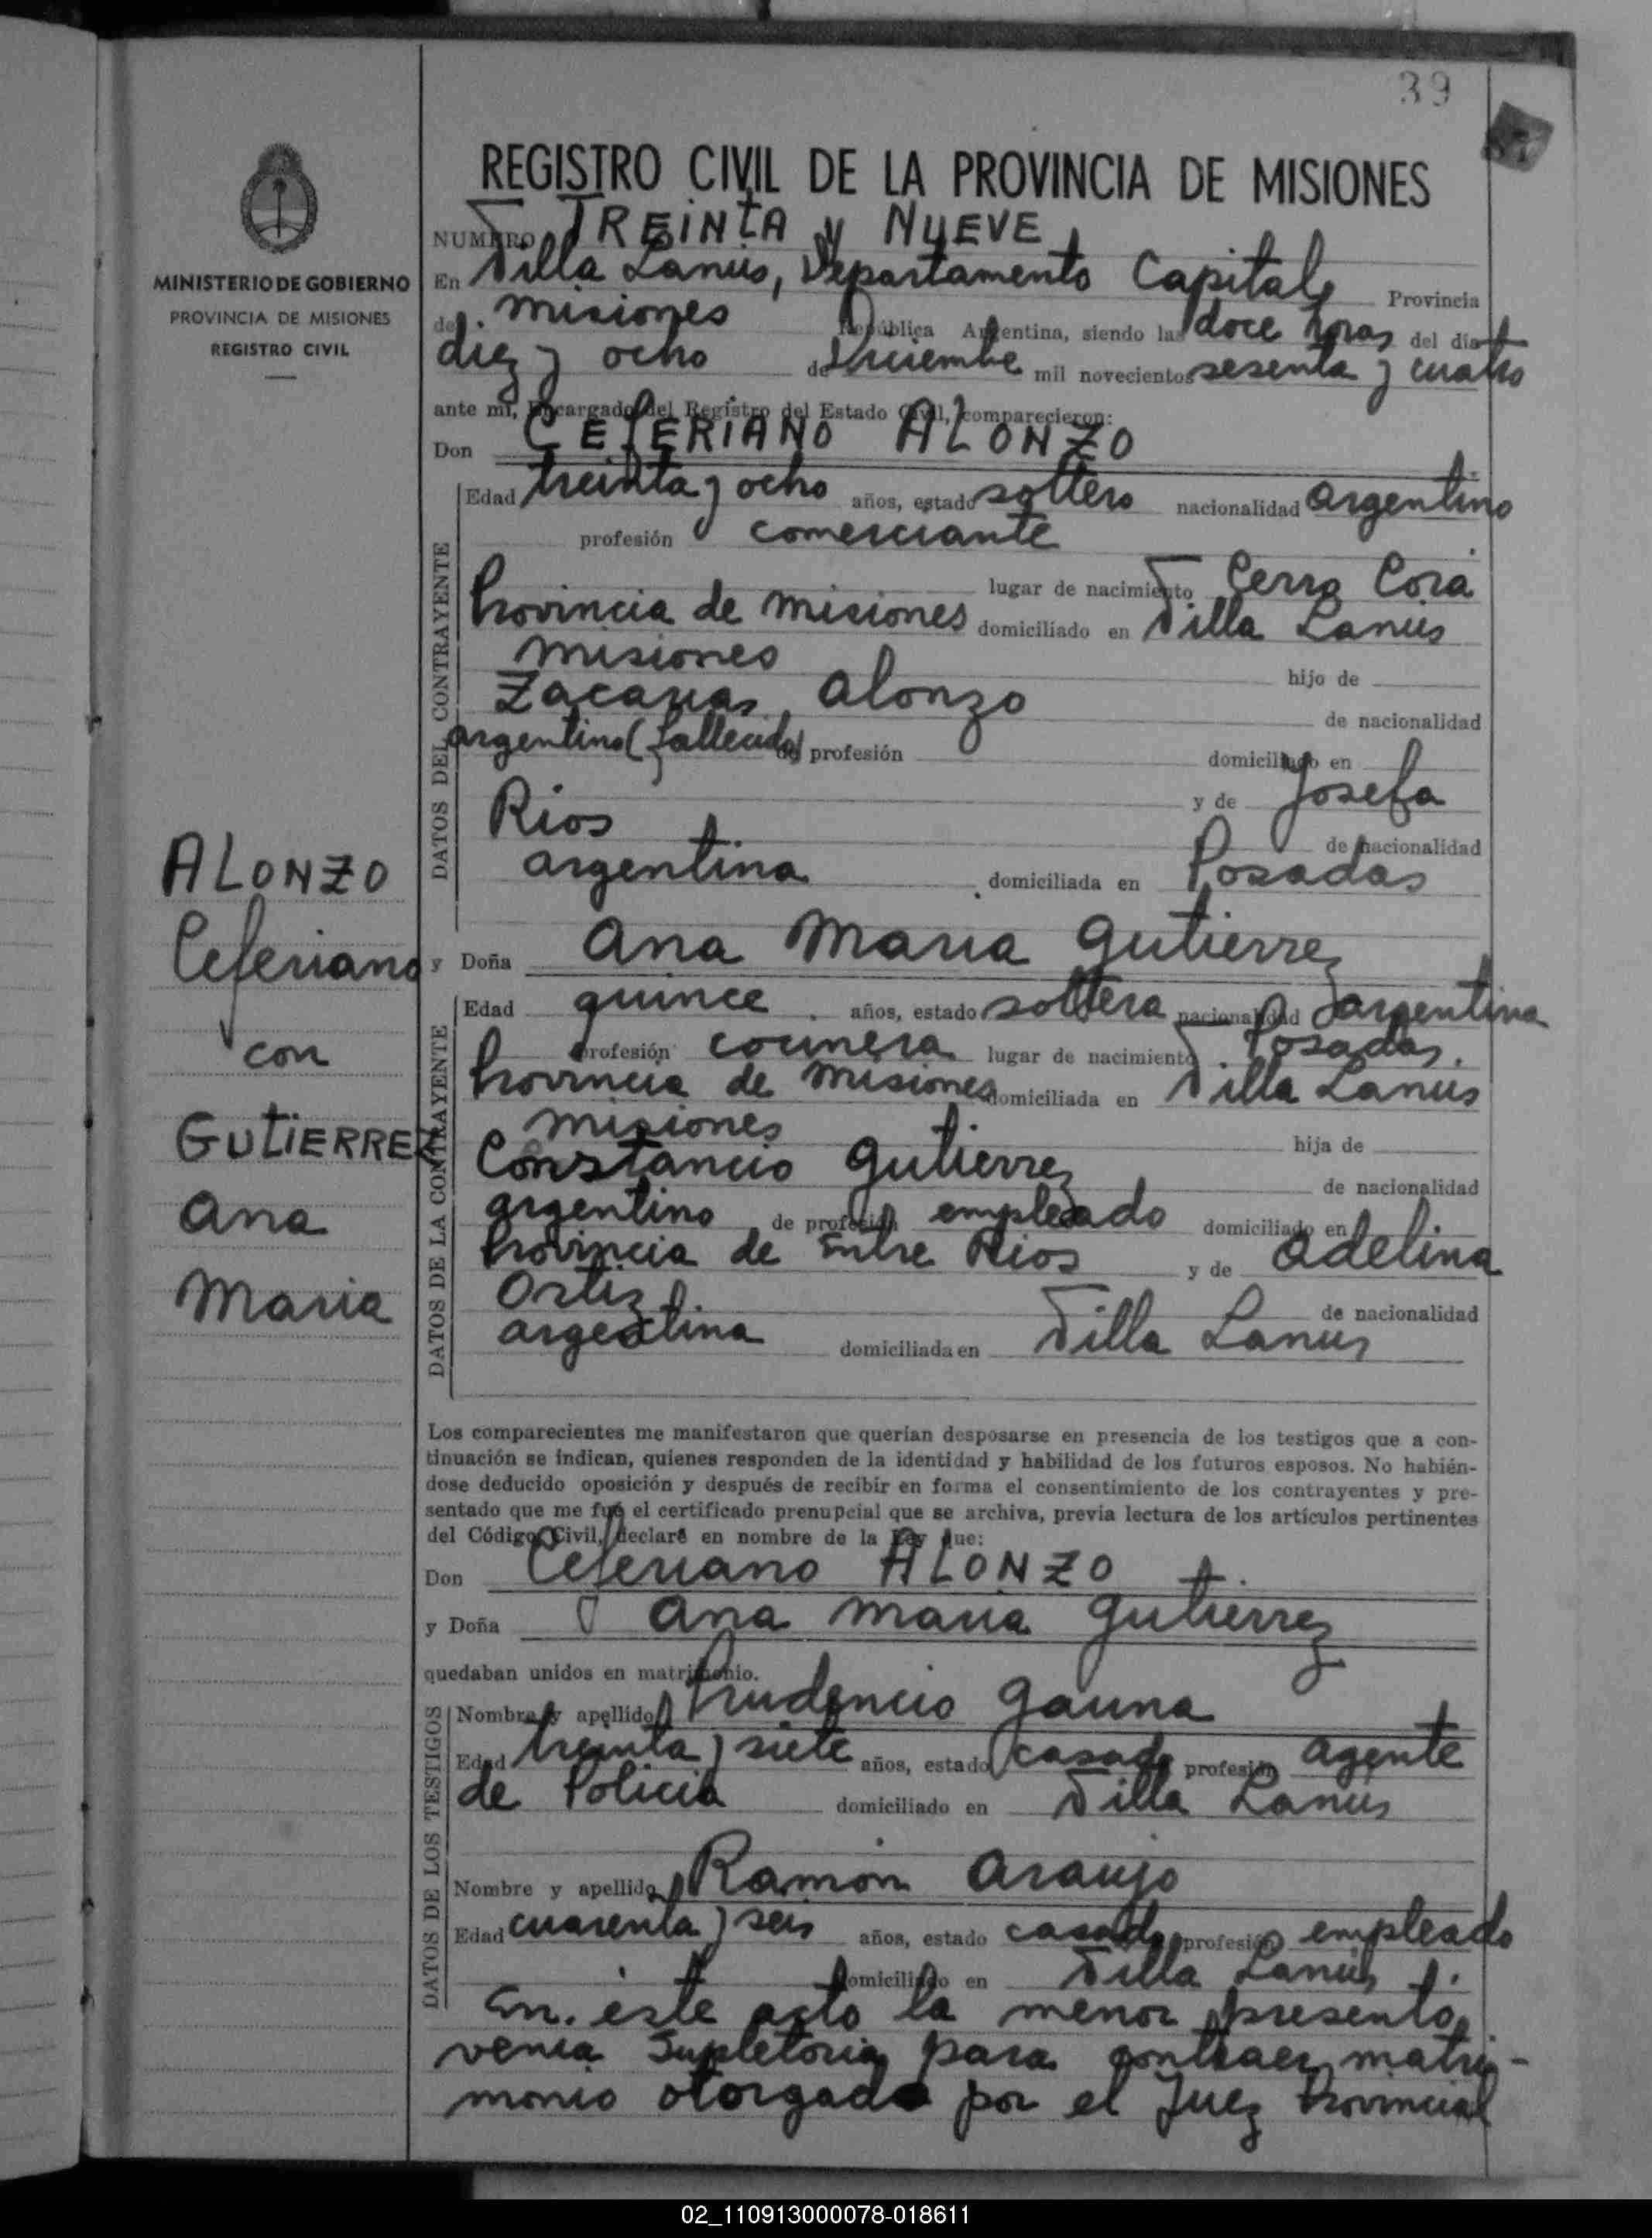 39
REGISTRO CIVIL DE LA PROVINCIA DE MISIONES
MINISTERIO DE GOBIERNO
PROVINCIA DE MISIONES
REGISTRO CIVIL
NUMERO TREINTA y NUEVE
En Villa Lanús, Departamento Capital, Provincia
de Misiones República Argentina, siendo las doce horas del día
diez y ocho de Diciembre mil novecientos sesenta y cuatro
ante mí, Encargado del Registro del Estado Civil, comparecieron:
Don CEFERIANO ALONZO
DATOS DEL CONTRAYENTE
Edad treinta y ocho años, estado soltero nacionalidad argentino
profesión comerciante
lugar de nacimiento Cerro Cora
Provincia de Misiones domiciliado en Villa Lanús
Misiones hijo de
Zacarias Alonzo de nacionalidad
argentino (fallecido) profesión domiciliado en
y de Josefa
Rios de nacionalidad
argentina domiciliada en Posadas
y Doña Ana Maria Gutierrez
DATOS DE LA CONTRAYENTE
Edad quince años, estado soltera nacionalidad argentina
profesión cocinera lugar de nacimiento Posadas.
Provincia de Misiones domiciliada en Villa Lanús
Misiones hija de
Constancio Gutierrez de nacionalidad
argentino de profesión empleado domiciliado en
Provincia de Entre Rios y de Adelina
Ortiz de nacionalidad
argentina domiciliada en Villa Lanus
ALONZO
Ceferiano
con
GUTIERREZ
Ana
Maria
Los comparecientes me manifestaron que querían desposarse en presencia de los testigos que a con-
tinuación se indican, quienes responden de la identidad y habilidad de los futuros esposos. No habién-
dose deducido oposición y después de recibir en forma el consentimiento de los contrayentes y pre-
sentado que me fué el certificado prenupcial que se archiva, previa lectura de los artículos pertinentes
del Código Civil, declaré en nombre de la Ley que:
Don Ceferiano ALONZO
y Doña Ana Maria Gutierrez
quedaban unidos en matrimonio.
DATOS DE LOS TESTIGOS
Nombre y apellido Prudencio Gauna
Edad treinta y siete años, estado casado profesión agente
de Policía domiciliado en Villa Lanús
Nombre y apellido Ramón Araujo
Edad cuarenta y seis años, estado casado profesión empleado
domiciliado en Villa Lanús
En este acto la menor presentó
venia Supletoria para contraer matri-
monio otorgado por el Juez Provincial
02_110913000078-018611